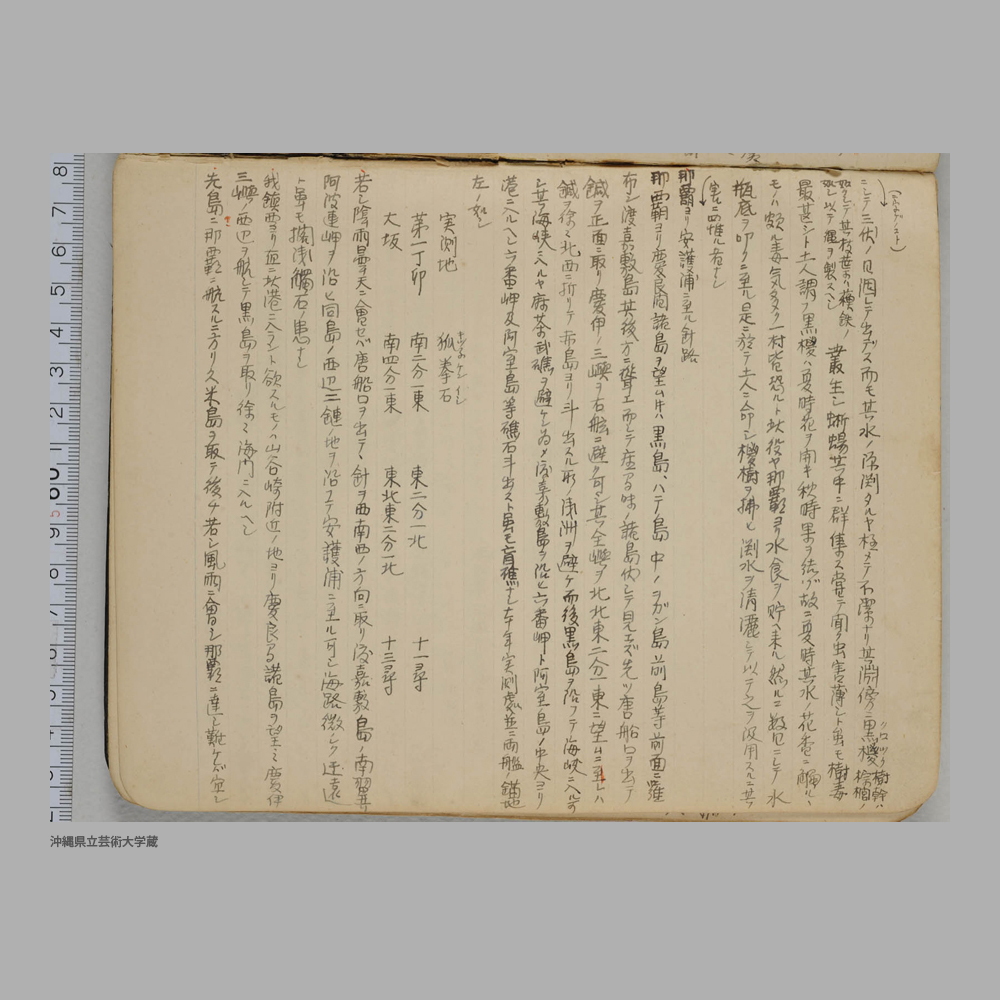 ニシテ三伏ノ日涸レテ出デス而モ其水ノ深渕タルヤ極メテ不潔ナリ其渕傍ニ黒樫樹幹ハ
如クシテ其枝葉ハ 叢生シ蜥蜴其中ニ群集ス嘗テ聞ク虫害薄シト虽モ樹毒
最甚シト土人謂フ黒樫ハ夏時花ヲ開キ秋時果ヲ結ブ故ニ夏時其水ノ花香ニ觸ルヽ
モノハ頗ル毒気多ク一村皆恐ルト此役ヤ那覇ヨリ水食ヲ貯ヘ来ル総ルニ数日ニシテ水
瓶底ヲ叩クニ至ル是ニ於テ土人ニ命シ樫樹ヲ拂ヒ渕水ヲ清灑シテ以テ之ヲ汲用スルニ其
害ニ四惟ル者ナシ
那覇ヨリ安護浦ニ至ル針路
那覇ヨリ慶良間諸島ヲ望ム片ハ黒島、ハテ島中ノヲガン島前島等前面ニ羅
布シ渡嘉敷島其後方ニ聳エ而シテ座間味ノ諸島伏シテ見エズ先ツ唐船口ヲ出テ
鍼ヲ正面ニ取リ慶伊ノ三嶼ヲ右舷ニ避ク可シ其全嶼ヲ北北東二分一東ニ望ムニ至レハ
鍼ヲ徐々北西ニ折リテ赤島ヨリ斗出スル所ノ浅洲ヲ避ケ而後黒島ヲ沿フテ海峡ニ入ル可
シ其海峡ニ入ルヤ麻茶武礁ヲ避ケン為メ渡嘉敷島ヲ沿ヒ六番岬ト阿室島ノ中央ヨリ
港ニ入ルヘシ六番岬及阿室島等礁石斗出スト虽モ盲礁ナシ本年実測處並ニ両艦ノ錨地
左ノ如シ
実測地 狐拳石
第一丁卯 南二分一東 東二分一北 十一尋
大坂 南四分一東 東北東二分一北 十三尋
若シ陰雨曇天ニ會セバ唐船口ヲ出テヽ針ヲ西南西ノ方向ニ取リ渡嘉敷島ノ南翌
阿波連岬ヲ沿ヒ同島ノ西辺二鏈ノ地ヲ沿フテ安護浦ニ至ル可シ海路微シク迂遠
ト虽モ擱浅觸石ノ患ナシ
我鎮西ヨリ直ニ此港ニ入ラント欲スルモノハ山谷崎附近ノ地ヨリ慶良間諸島ヲ望ミ慶伊
三嶼ノ西辺ヲ航シテ黒島ヲ取リ徐々海門ニ入ルヘシ
先島ニ那覇ニ航スルニ方リ久米島ヲ取テ後チ若シ風雨ニ會シ那覇ニ達シ難ケバ宜シ
沖縄県立芸術大学蔵